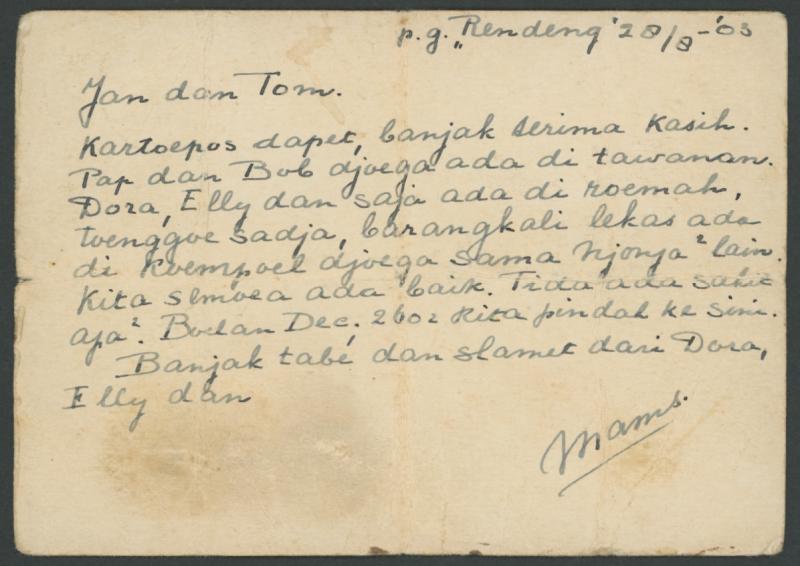 p.g. „Rendeng" 28/8-'03
Jan dan Tom.
Kartoepos dapet, banjak terima kasih.
Pap dan Bob djoega ada di tawanan.
Dora, Elly dan saja ada di roemah,
toenggoe sadja, barangkali lekas ada
di koempoel djoega sama njonja² lain.
Kita semoea ada baik. Tida ada sakit
apa². Boelan Dec. 2602 kita pindah ke sini.
Banjak tabé dan slamet dari Dora,
Elly dan
Mams.